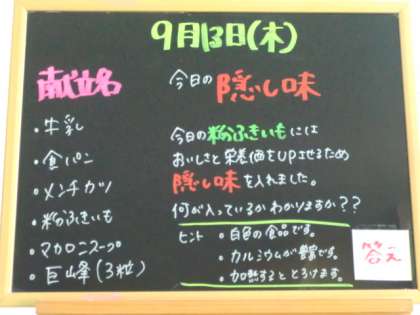 9月13日(木)
献立名
・牛乳
・食パン
・メンチカツ
・粉ふきいも
・マカロニスープ
・巨峰(3粒)
今日の隠し味
今日の粉ふきいもには
おいしさと栄養価をUPさせるため
隠し味を入れました。
何が入っているかわかりますか??
ヒント ・白色の食品です。
・カルシウムが豊富です。
・加熱するととろけます。
答え